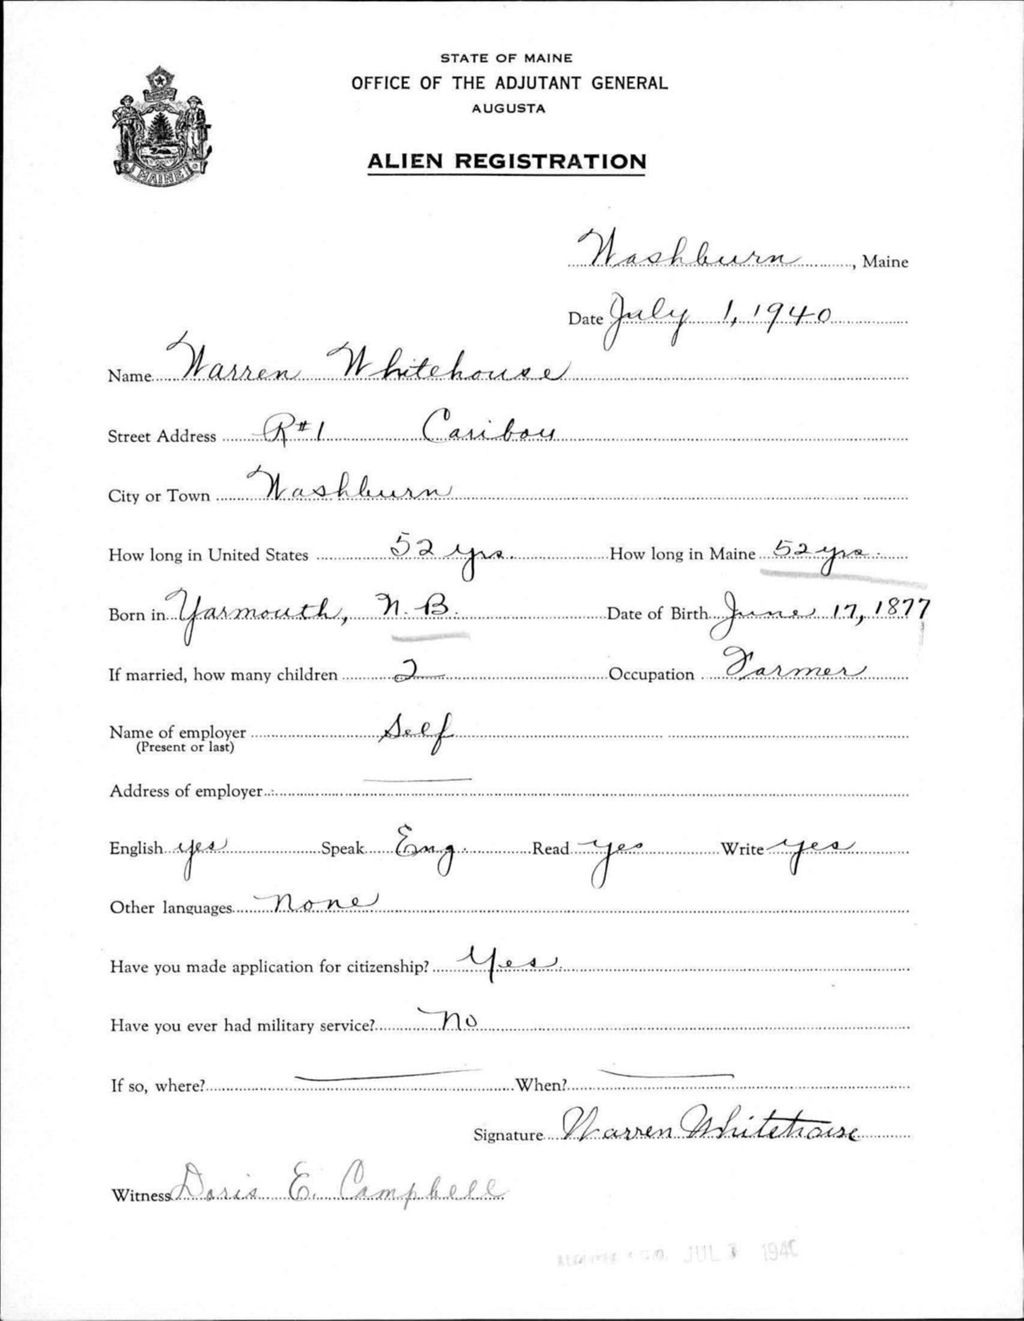 STATE OF MAINE
OFFICE OF THE ADJUTANT GENERAL
AUGUSTA
MAINE
ALIEN REGISTRATION
Washburn, Maine
Date July 1, 1940
Name Warren Whitehouse
Street Address R#1 Caribou
City or Town Washburn
How long in United States 52 yrs. How long in Maine 52 yrs.
Born in Yarmouth, N.B. Date of Birth June 17, 1877
If married, how many children 2 Occupation Farmer
Name of employer Self
(Present or last)
Address of employer
English yes Speak Eng. Read yes Write yes
Other languages None
Have you made application for citizenship? Yes
Have you ever had military service? No
If so, where? When?
Signature Warren Whitehouse
Witness Doris E. Campbell
JUL 3 1940